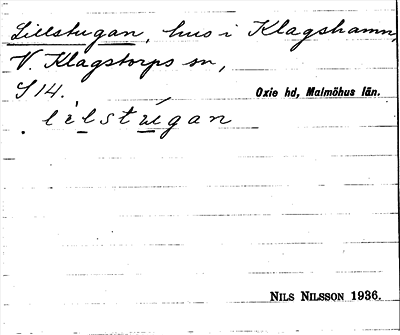 Lillstugan, hus i Klagshamn,
V. Klagstorps sn,
S 14.
Oxie hd, Malmöhus län.
lìlstúgan
NILS NILSSON 1936.